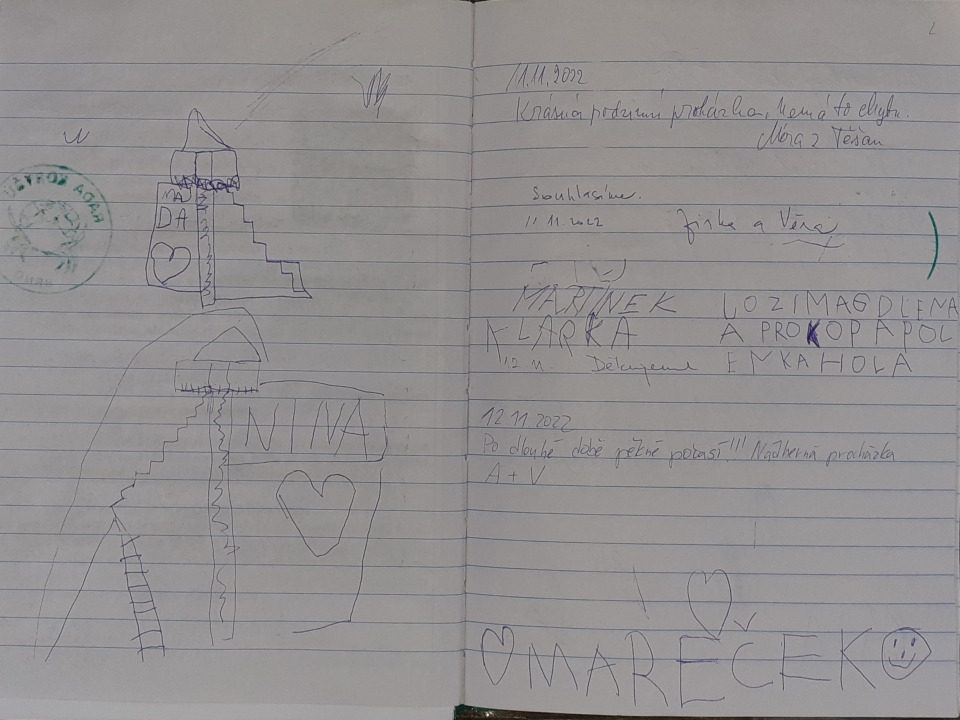 MA
DA
NINA
11.11.2022
Krásná podzimní procházka, nemá to chybu.
Móra z Těšan
Souhlasíme.
11.11.2022 Jirka a Věra
MARTÍNEK
KLÁRKA
12.11. Děkujeme
LOZIMAGDLENA
A PROKOP A POL
EMKA HOLA
12.11.2022
Po dlouhé době pěkné počasí!!! Nádherná procházka
A + V
MAREČEK